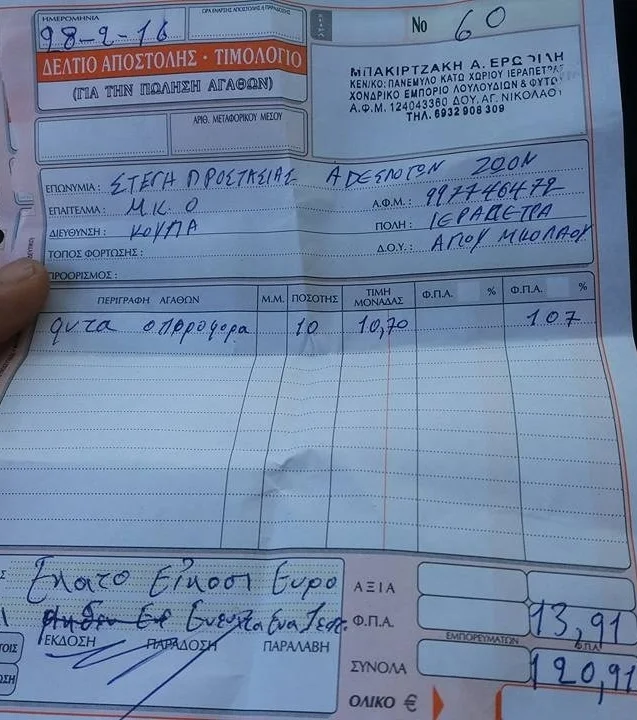 ΗΜΕΡΟΜΗΝΙΑ
28-2-16
No 60
ΔΕΛΤΙΟ ΑΠΟΣΤΟΛΗΣ · ΤΙΜΟΛΟΓΙΟ
(ΓΙΑ ΤΗΝ ΠΩΛΗΣΗ ΑΓΑΘΩΝ)
ΜΠΑΚΙΡΤΖΑΚΗ Α.
ΚΕΝ/ΚΟ: ΠΑΝΕΜΥΛΟ ΚΑΤΩ ΧΩΡΙΟΥ ΙΕΡΑΠΕΤΡΑΣ
ΧΟΝΔΡΙΚΟ ΕΜΠΟΡΙΟ ΛΟΥΛΟΥΔΙΩΝ & ΦΥΤΩΝ
Α.Φ.Μ. 124043360 ΔΟΥ. ΑΓ. ΝΙΚΟΛΑΟΥ
ΤΗΛ. 6932 908 309
ΑΡΙΘ. ΜΕΤΑΦΟΡΙΚΟΥ ΜΕΣΟΥ
ΕΠΩΝΥΜΙΑ : ΣΤΕΓΗ ΠΡΟΣΤΑΣΙΑΣ ΑΔΕΣΠΟΤΩΝ ΖΩΟΝ
ΕΠΑΓΓΕΛΜΑ : Μ.Κ.Ο Α.Φ.Μ. : 997746472
ΔΙΕΥΘΥΝΣΗ : ΚΟΥΠΑ ΠΟΛΗ : ΙΕΡΑΠΕΤΡΑ
ΤΟΠΟΣ ΦΟΡΤΩΣΗΣ : Δ.Ο.Υ. : ΑΓΙΟΥ ΝΙΚΟΛΑΟΥ
ΠΡΟΟΡΙΣΜΟΣ :
ΠΕΡΙΓΡΑΦΗ ΑΓΑΘΩΝ Μ.Μ. ΠΟΣΟΤΗΣ ΤΙΜΗ ΜΟΝΑΔΑΣ Φ.Π.Α. % Φ.Π.Α. %
φυτα οπωροφορα 10 10,70 107
Εκατο Είκοσι Ευρο
Ενενητα Ενα Λεπτ.
ΑΞΙΑ
Φ.Π.Α. 13,91
ΕΚΔΟΣΗ ΠΑΡΑΔΟΣΗ ΠΑΡΑΛΑΒΗ
ΕΜΠΟΡΕΥΜΑΤΩΝ Φ.Π.Α.
ΣΥΝΟΛΑ 120,91
ΟΛΙΚΟ €